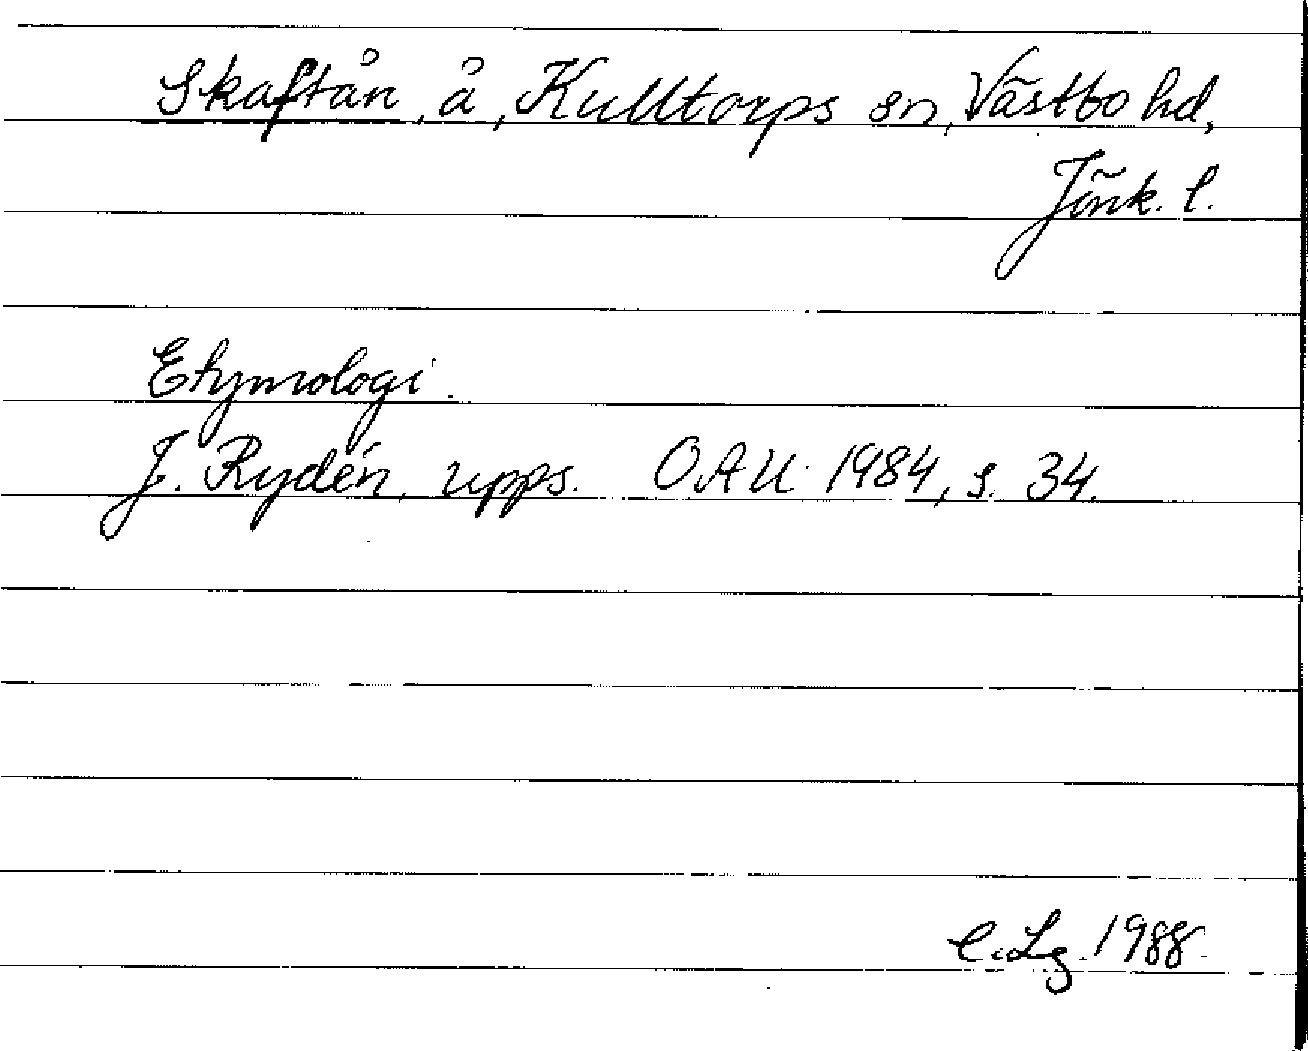 Skaftån, å, Kulltorps sn, Västbo hd,
Jönk. l.
Etymologi.
J. Rydén, upps. OAU 1984, s. 34.
C. Lg. 1988